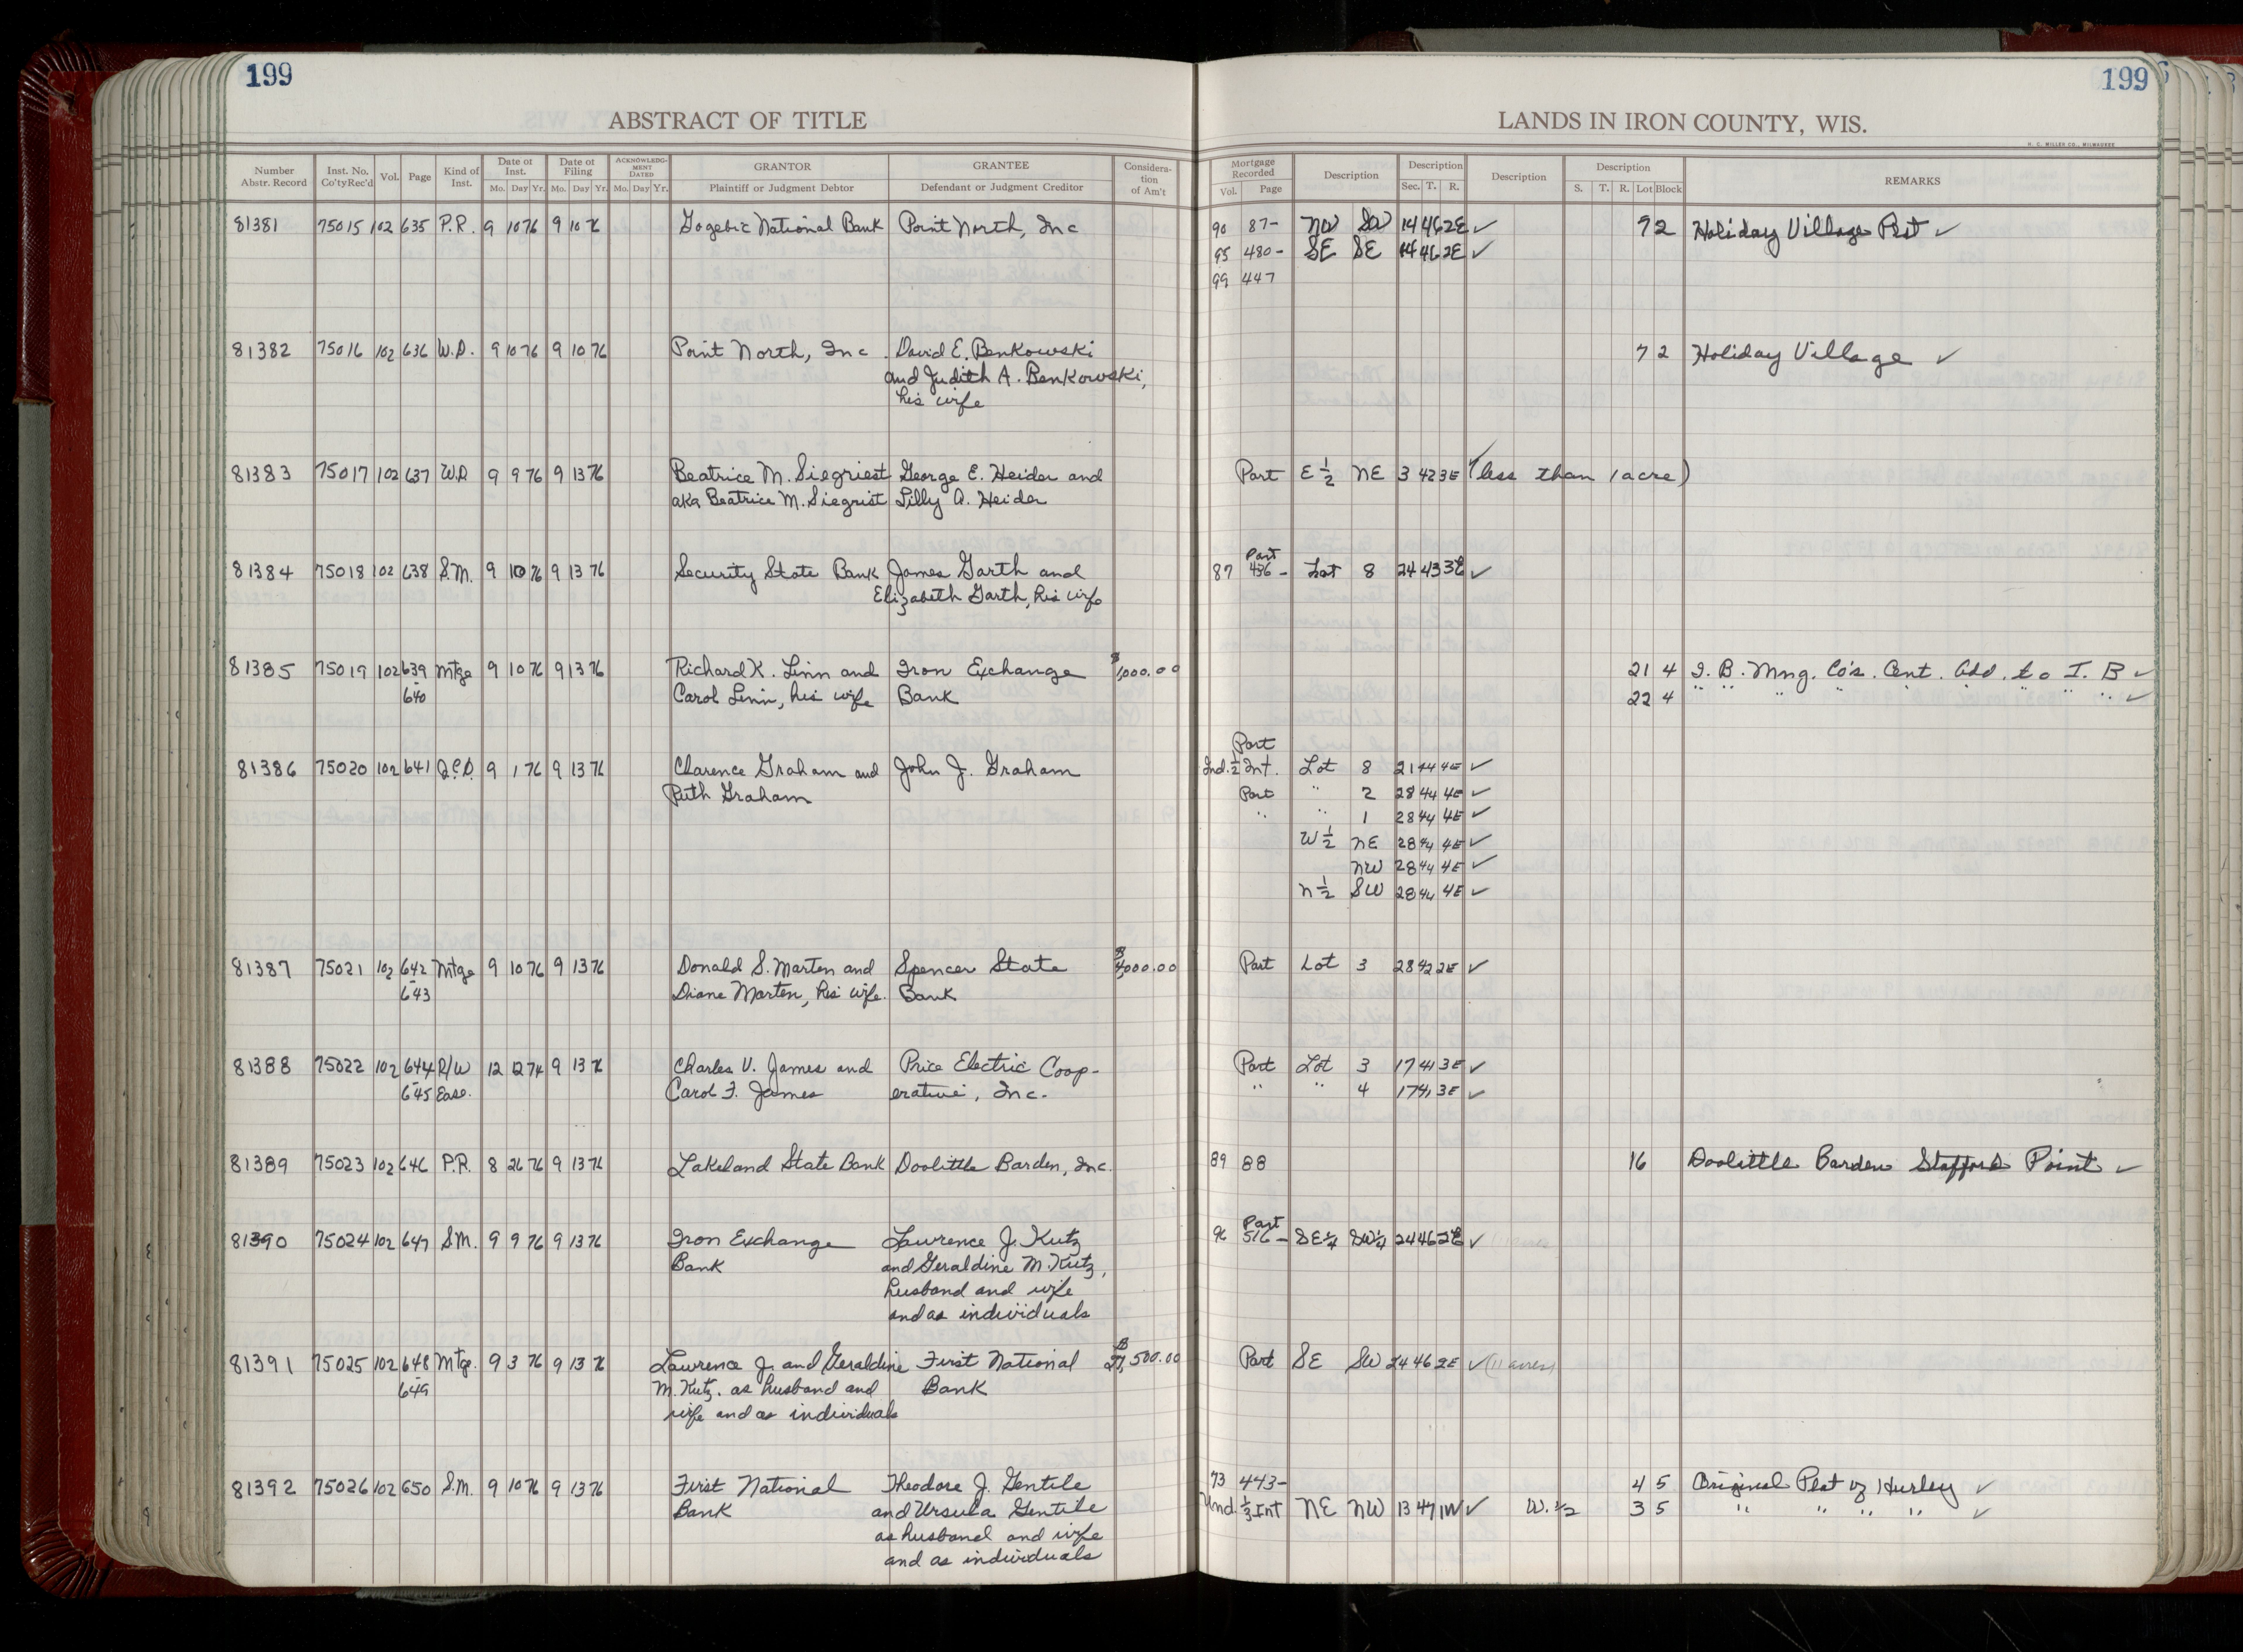 199
199
ABSTRACT OF TITLE
LANDS IN IRON COUNTY, WIS.
H. C. MILLER CO., MILWAUKEE
Number Abstr. Record Inst. No. Co'ty Rec'd Vol. Page Kind of Inst. Date of Inst. Mo. Day Yr. Date of Filing Mo. Day Yr. ACKNOWLEDGMENT DATED Mo. Day Yr. GRANTOR Plaintiff or Judgment Debtor GRANTEE Defendant or Judgment Creditor Consideration of Am't
Mortgage Recorded Vol. Page Description Description Sec. T. R. Description Description S. T. R. Lot Block REMARKS
81381 75015 102 635 P.R. 9 10 76 9 10 76 Gogebic National Bank Point North, Inc 90 87- NW SW 14 46 2E ✓ 7 2 Holiday Village ✓
95 480- SE SE 14 46 2E ✓
99 447
81382 75016 102 636 W.D. 9 10 76 9 10 76 Point North, Inc. David E. Benkowski 7 2 Holiday Village ✓
and Judith A. Benkowski,
his wife
81383 75017 102 637 W.D 9 9 76 9 13 76 Beatrice M. Siegriest George E. Heider and Part E ½ NE 3 42 3E ✓ (less than 1 acre)
aka Beatrice M. Siegrist Lilly A. Heider
Part
81384 75018 102 638 S.M. 9 10 76 9 13 76 Security State Bank James Garth and 87 436- Lot 8 24 43 3E ✓
Elizabeth Garth, his wife
81385 75019 102 639 Mtge 9 10 76 9 13 76 Richard K. Linn and Iron Exchange $1,000.00 21 4 I. B. Mng. Co's. Cent. Add. to I. B ✓
-640 Carol Linn, his wife Bank 22 4 " " " " " " " " ✓
Part
81386 75020 102 641 Q.C.D. 9 1 76 9 13 76 Clarence Graham and John J. Graham Ind. ½ Int. Lot 8 21 44 4E ✓
Ruth Graham Part " 2 28 44 4E ✓
" " 1 28 44 4E ✓
W ½ NE 28 44 4E ✓
NW 28 44 4E ✓
N ½ SW 28 44 4E ✓
81387 75021 102 642 Mtge 9 10 76 9 13 76 Donald S. Marten and Spencer State $4,000.00 Part Lot 3 28 42 2E ✓
-643 Diane Marten, his wife. Bank
81388 75022 102 644 R/W 12 12 74 9 13 76 Charles V. James and Price Electric Coop- Part Lot 3 17 41 3E ✓
-645 Ease. Carol F. James erative, Inc. " " 4 17 41 3E ✓
81389 75023 102 646 P.R. 8 26 76 9 13 76 Lakeland State Bank Doolittle Barden, Inc. 89 88 16 Doolittle Barden Stafford Point ✓
Part
81390 75024 102 647 S.M. 9 9 76 9 13 76 Iron Exchange Lawrence J. Kutz 96 516- SE¼ SW¼ 24 46 2E ✓
Bank and Geraldine M. Kutz,
husband and wife
and as individuals
81391 75025 102 648 Mtge. 9 3 76 9 13 76 Lawrence J. and Geraldine First National $27,500.00 Part SE SW 24 46 2E ✓ (11 acres)
-649 M. Kutz. as husband and Bank
wife and as individuals
81392 75026 102 650 S.M. 9 10 76 9 13 76 First National Theodore J. Gentile 73 443- 4 5 Original Plat of Hurley ✓
Bank and Ursula Gentile Und. ⅓ Int NE NW 13 47 1W ✓ W. ½ 3 5 " " " " ✓
as husband and wife
and as individuals